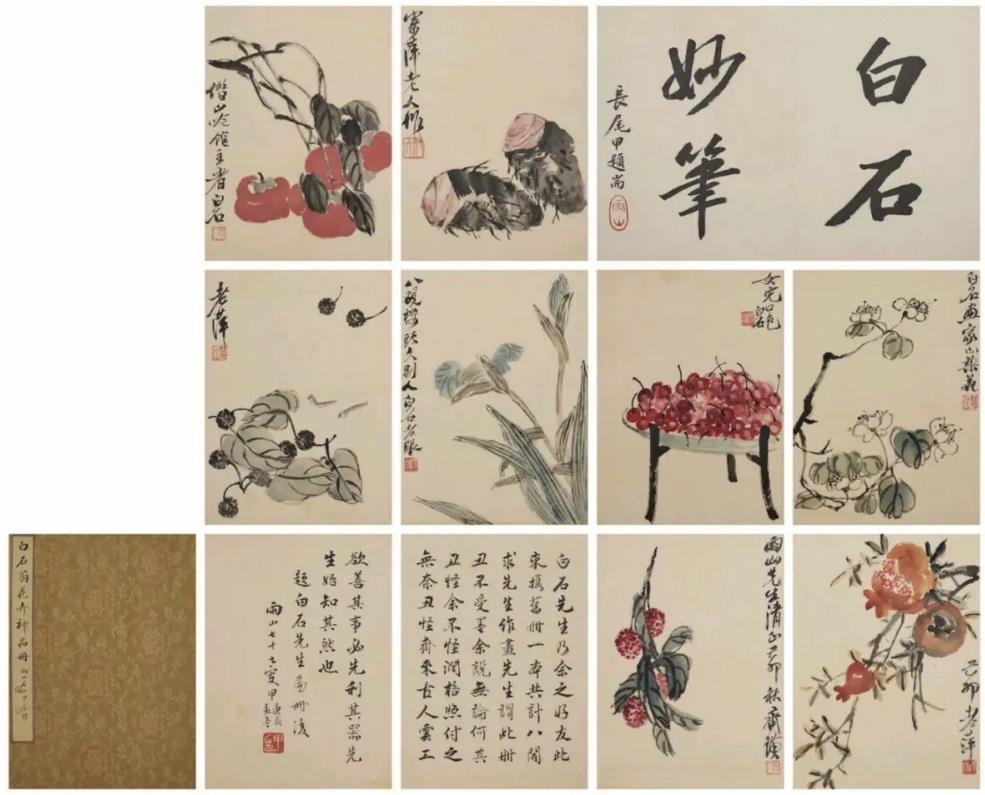 白石
妙筆
長尾甲題耑
雨山
寄萍老人作
借山吟館主者白石
白石畫家山梨花
女兒口色
白石
八硯樓頭久別人白石老眼
老萍
己卯老萍
雨山先生清正己卯秋齊璜
白石先生乃余之好友此
來攜舊冊一本共計八開
求先生作畫先生謂此冊
丑不受墨余說無論何其
丑怪余不怪潤格照付之
無奈丑怪齊來古人雲工
欲善其事必先利其器先
生始知其然也
題白石先生畫冊後
雨山七十七叟甲
白石翁花卉神品冊